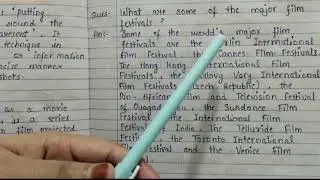 "putting
round the
parent". It
technique in
or information
ncise manner
as a movie
is a series
film projected
Ques- What are some of the major film
festivals ?
Ans- Some of the world's major film
festivals are the Berlin International
Film Festival, the Cannes Film Festivals,
the Hong Kong International Film
Festivals, the Karlovy Vary International
Film Festivals (Czech Republic), the
Pan-African Film and Television Festival
of Ouagadou, the Sundance Film
Festival, International Film
Festival of India, The Telluride Film
Festival, the Toronto International
Film Festival and the Venice Film